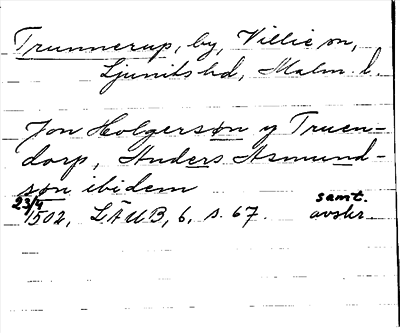 Trunnerup, by, Villie sn,
Ljunits hd, Malm. l.
Jon Holgersøn y Truen-
dorp, Anders Asmund-
søn ibidem
23/4 1502, LÄUB, 6, s. 67. samt. avskr.